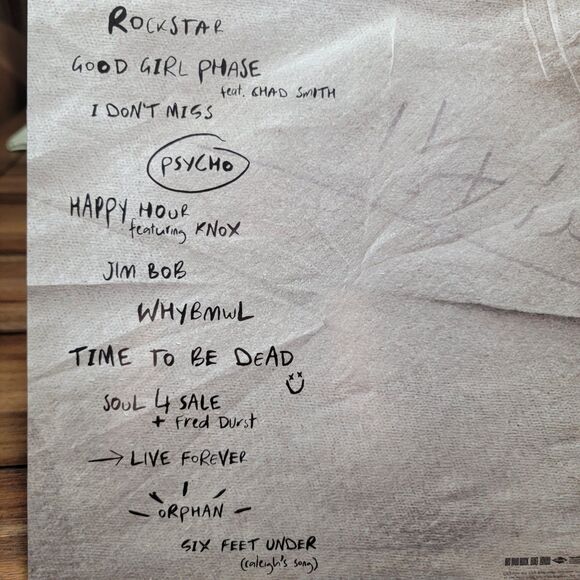 ROCKSTAR
GOOD GIRL PHASE
feat. CHAD SMITH
I DON'T MISS
PSYCHO
HAPPY HOUR
featuring KNOX
JIM BOB
WHYBMWL
TIME TO BE DEAD
SOUL 4 SALE
+ Fred Durst
→ LIVE FOREVER
ORPHAN
SIX FEET UNDER
(raleigh's song)